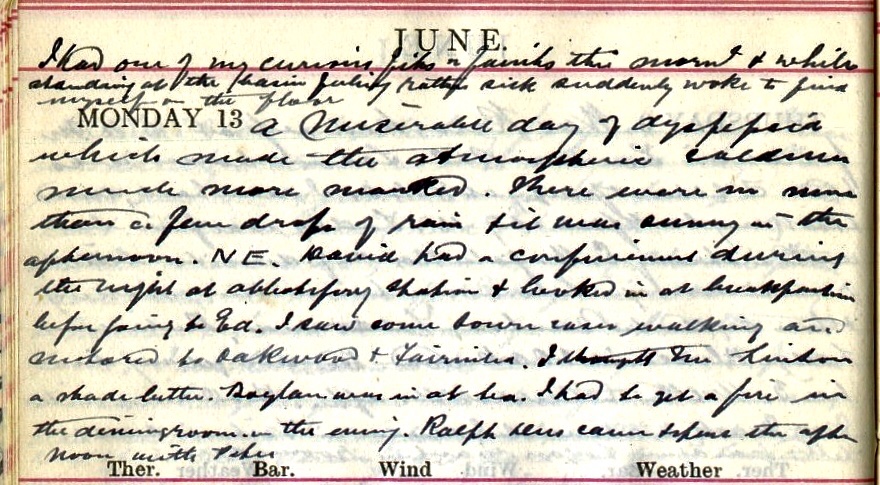 JUNE.
I had one of my curious fits or faints this morng & while
standing at the basin feeling rather sick suddenly woke to find
myself on the floor
MONDAY 13 A miserable day of dyspepsia
which made the atmospheric
much more marked. There were no more
than a few drops of rain & it was sunny in the
afternoon. NE. David had a confinement during
the night at Abbotsford station & looked in at breakfast
before going to Ed. I saw some town cases walking and
motored to Oakwood & Fairnilee. I thought
a shade better. Boylan was in at tea. I had to get a fire in
the diningroom in the evening. Ralph came & spent the after
noon with Peter
Ther. Bar. Wind Weather